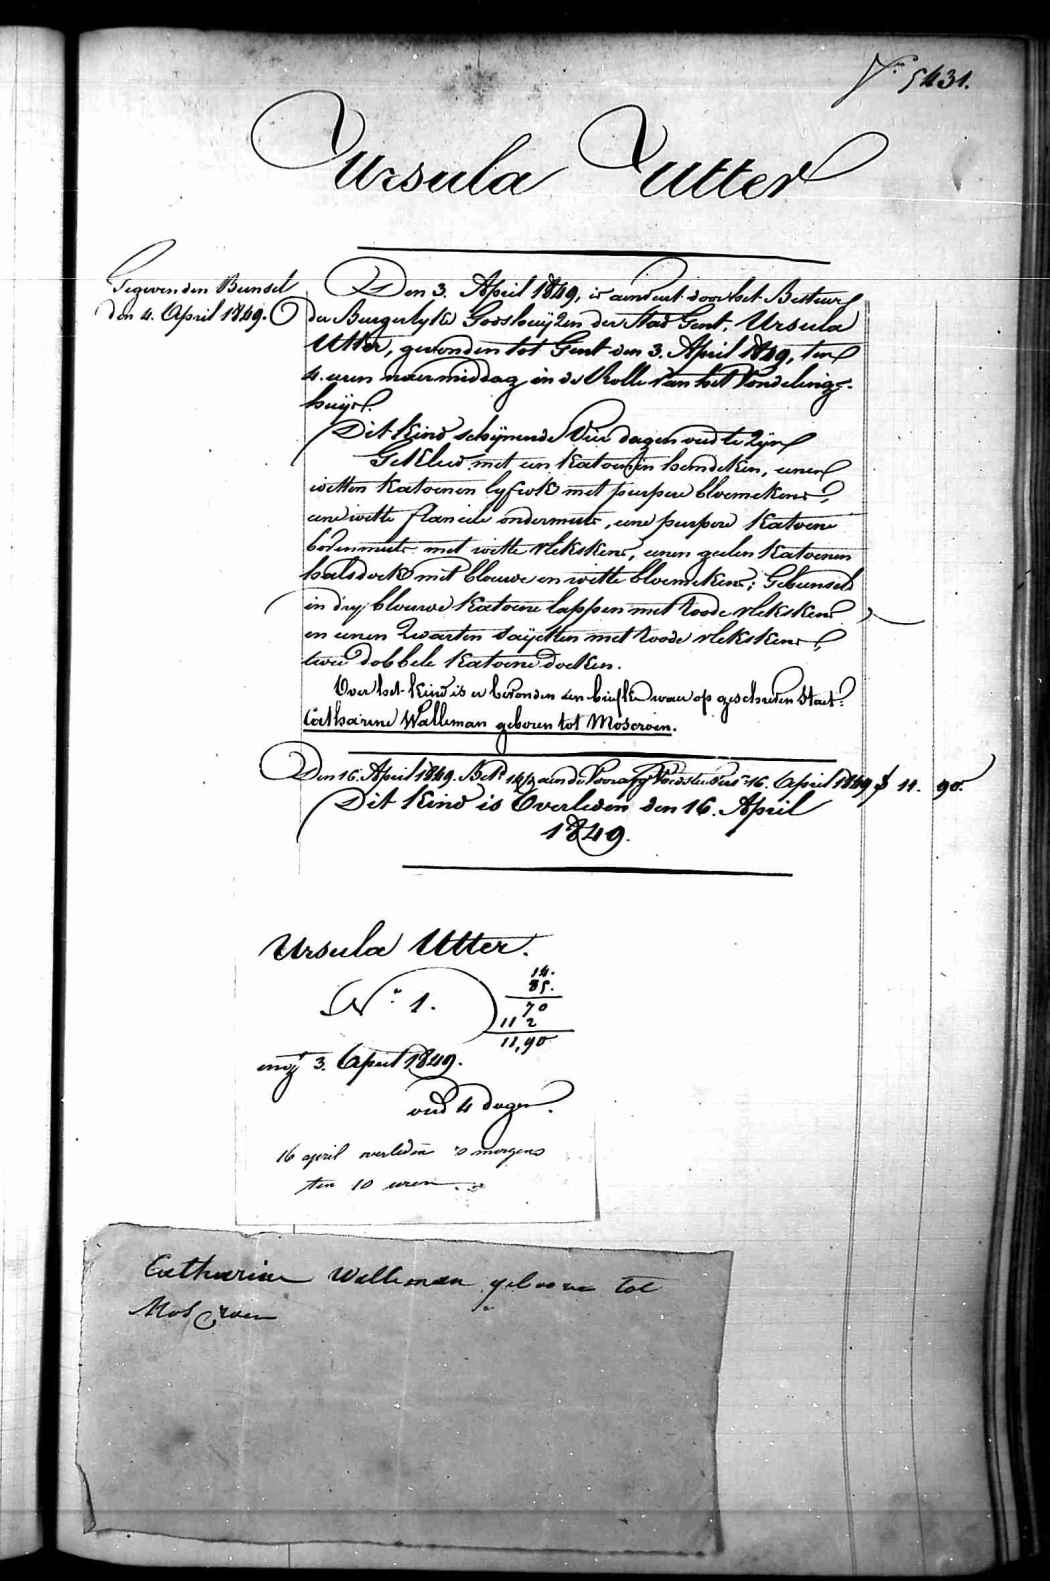 N.° 5431.
Ursula Utter
Gegeven den Bunsel
den 4. April 1849.
Den 3. April 1849, is aenveirt door het Bestuur
der Burgerlyke Godshuyzen der Stad Gent, Ursula
Utter, gevonden tot Gent den 3. April 1849, ten
4. uren naermiddag in de Rolle van het Vondeling-
huys.
Dit Kind schynende Vier dagen oud te zyn
Gekleed met een Katoenen hemdeken, eenen
witten Katoenen lyfrok met purpere bloemekens,
eene witte flanelle ondermuts, eene purpere Katoene
bovenmuts met witte vlekskens, eenen geelen Katoenen
halsdoek met blauwe en witte bloemekens; Gebunseld
in dry blauwe Katoene lappen met roode vlekskens
en eenen zwarten sayetten met roode vlekskens,
twee dobbele Katoene doeken.
Over het Kind is er bevonden een briefke waer op geschreven Staet:
Catharine Walleman geboren tot Moscroen.
Den 16. April 1849. Bet. 14/d aen de Voorafg Voedster Sers 16. April 1849 f 11. 90.
Dit Kind is Overleden den 16. April
1849.
Ursula Utter.
N.° 1.
14.
85.
70
112
11,90
3. April 1849.
oud 4 dagen.
16 april overleden 's morgens
ten 10 uren
Catharine Walleman geboore tot
Moscroen